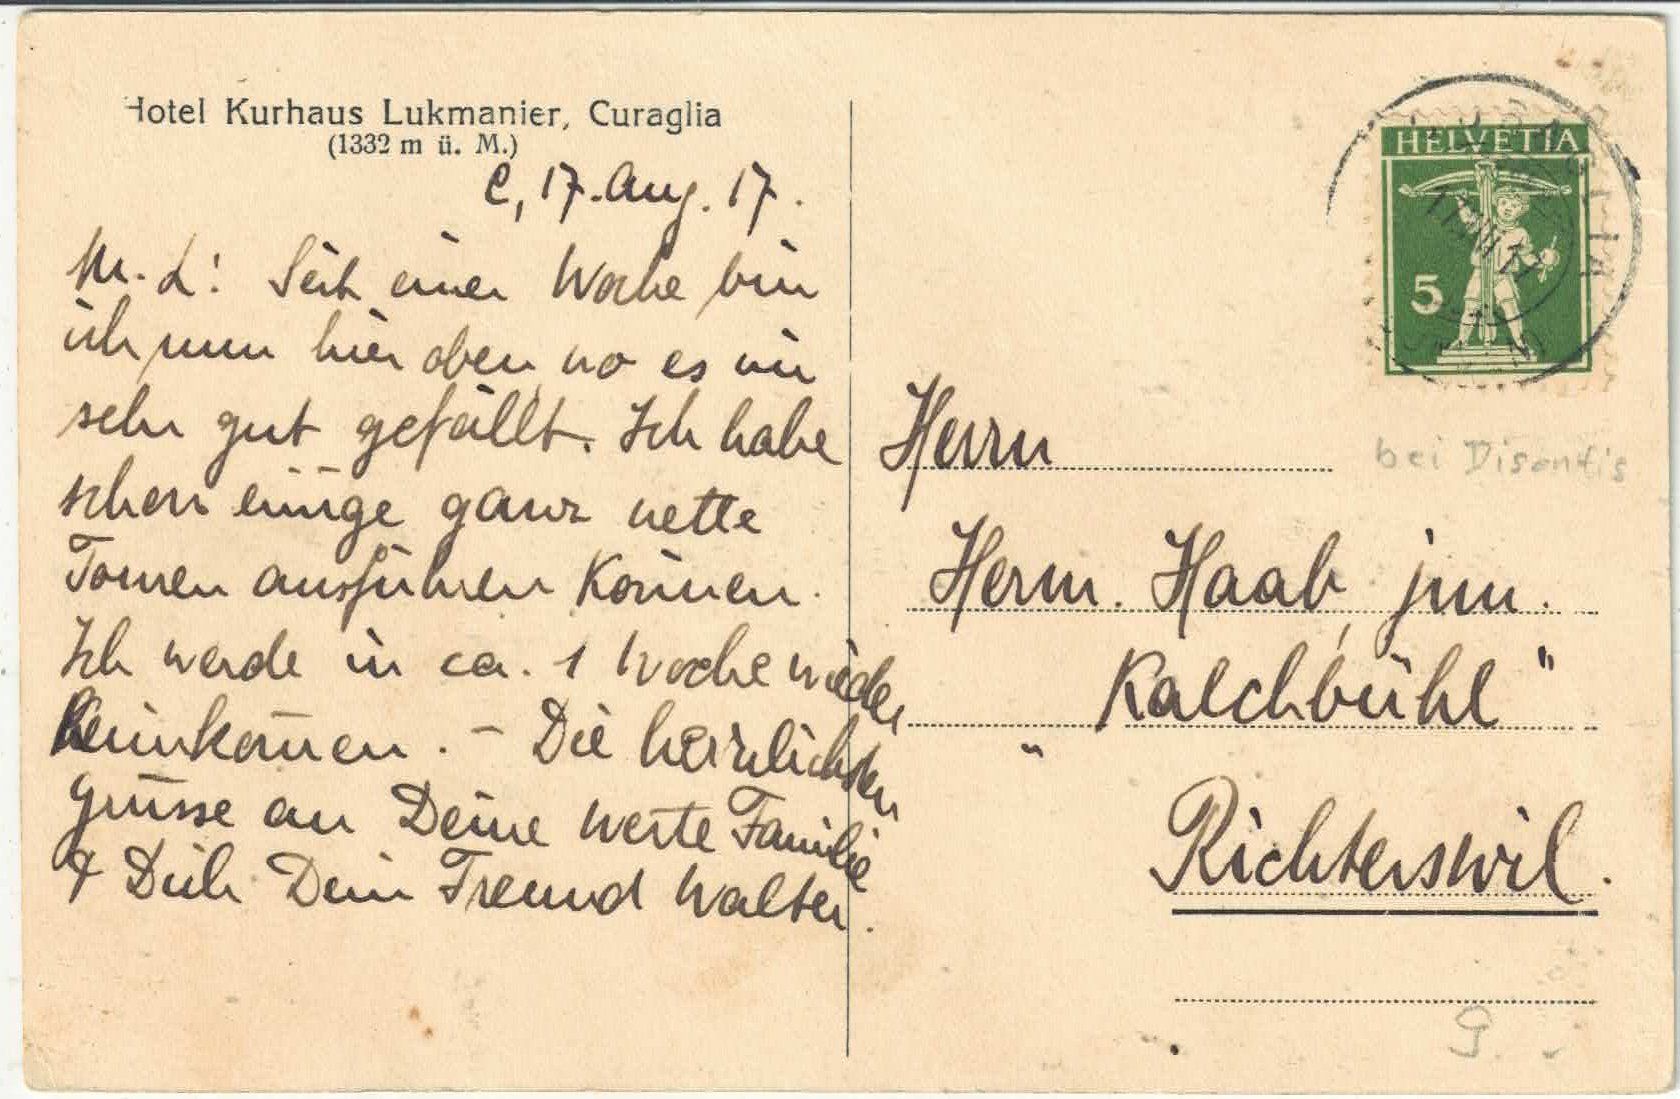 Hotel Kurhaus Lukmanier, Curaglia
(1332 m ü. M.)
C, 17. Aug. 17.
M. L! Seit einer Woche bin
ich nun hier oben wo es mir
sehr gut gefällt. Ich habe
schon einige ganz nette
Touren ausführen können.
Ich werde in ca. 1 Woche wieder
heimkom̄en. – Die herzlichsten
Grüsse an Deine werte Familie
& Dich Dein Freund Walter.
HELVETIA
5
CURAGLIA
Herrn
bei Disentis
Herm. Haab, jun.
"Kalchbühl"
Richterswil.
g.